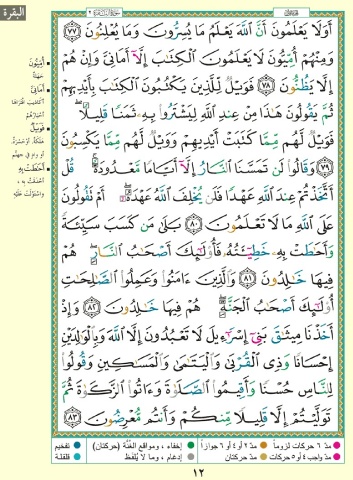 البقرة
أَوَلَا يَعْلَمُونَ أَنَّ ٱللَّهَ يَعْلَمُ مَا يُسِرُّونَ وَمَا يُعْلِنُونَ ٧٧
وَمِنْهُمْ أُمِّيُّونَ لَا يَعْلَمُونَ ٱلْكِتَٰبَ إِلَّآ أَمَانِىَّ وَإِنْ هُمْ
إِلَّا يَظُنُّونَ ٧٨ فَوَيْلٌ لِّلَّذِينَ يَكْتُبُونَ ٱلْكِتَٰبَ بِأَيْدِيهِمْ
ثُمَّ يَقُولُونَ هَٰذَا مِنْ عِندِ ٱللَّهِ لِيَشْتَرُوا۟ بِهِۦ ثَمَنًا قَلِيلًا ۖ
فَوَيْلٌ لَّهُم مِّمَّا كَتَبَتْ أَيْدِيهِمْ وَوَيْلٌ لَّهُم مِّمَّا يَكْسِبُونَ
٧٩ وَقَالُوا۟ لَن تَمَسَّنَا ٱلنَّارُ إِلَّآ أَيَّامًا مَّعْدُودَةً ۚ قُلْ
أَتَّخَذْتُمْ عِندَ ٱللَّهِ عَهْدًا فَلَن يُخْلِفَ ٱللَّهُ عَهْدَهُۥٓ ۖ أَمْ تَقُولُونَ
عَلَى ٱللَّهِ مَا لَا تَعْلَمُونَ ٨٠ بَلَىٰ مَن كَسَبَ سَيِّئَةً
وَأَحَٰطَتْ بِهِۦ خَطِيٓـَٔتُهُۥ فَأُو۟لَٰٓئِكَ أَصْحَٰبُ ٱلنَّارِ ۖ هُمْ
فِيهَا خَٰلِدُونَ ٨١ وَٱلَّذِينَ ءَامَنُوا۟ وَعَمِلُوا۟ ٱلصَّٰلِحَٰتِ
أُو۟لَٰٓئِكَ أَصْحَٰبُ ٱلْجَنَّةِ ۖ هُمْ فِيهَا خَٰلِدُونَ ٨٢ وَإِذْ
أَخَذْنَا مِيثَٰقَ بَنِىٓ إِسْرَٰٓءِيلَ لَا تَعْبُدُونَ إِلَّا ٱللَّهَ وَبِٱلْوَٰلِدَيْنِ
إِحْسَانًا وَذِى ٱلْقُرْبَىٰ وَٱلْيَتَٰمَىٰ وَٱلْمَسَٰكِينِ وَقُولُوا۟
لِلنَّاسِ حُسْنًا وَأَقِيمُوا۟ ٱلصَّلَوٰةَ وَءَاتُوا۟ ٱلزَّكَوٰةَ ثُمَّ
تَوَلَّيْتُمْ إِلَّا قَلِيلًا مِّنكُمْ وَأَنتُم مُّعْرِضُونَ ٨٣
أُمِّيُّونَ
جهلة
أَمَانِيَّ
أكاذيب افتراها
أحبارهم
فَوَيْلٌ
هلكة، أو حسرة،
أو واد في جهنم
أَحَاطَتْ بِهِ
أحدقت به،
واستولت عليه
مدّ ٦ حركات لزوماً مدّ ٢ أو ٤ أو ٦ جوازاً إخفاء، ومواقع الغُنَّة (حركتان) تفخيم
مدّ واجب ٤ أو ٥ حركات مدّ حركتان إدغام، وما لا يُلفظ قلقلة
١٢